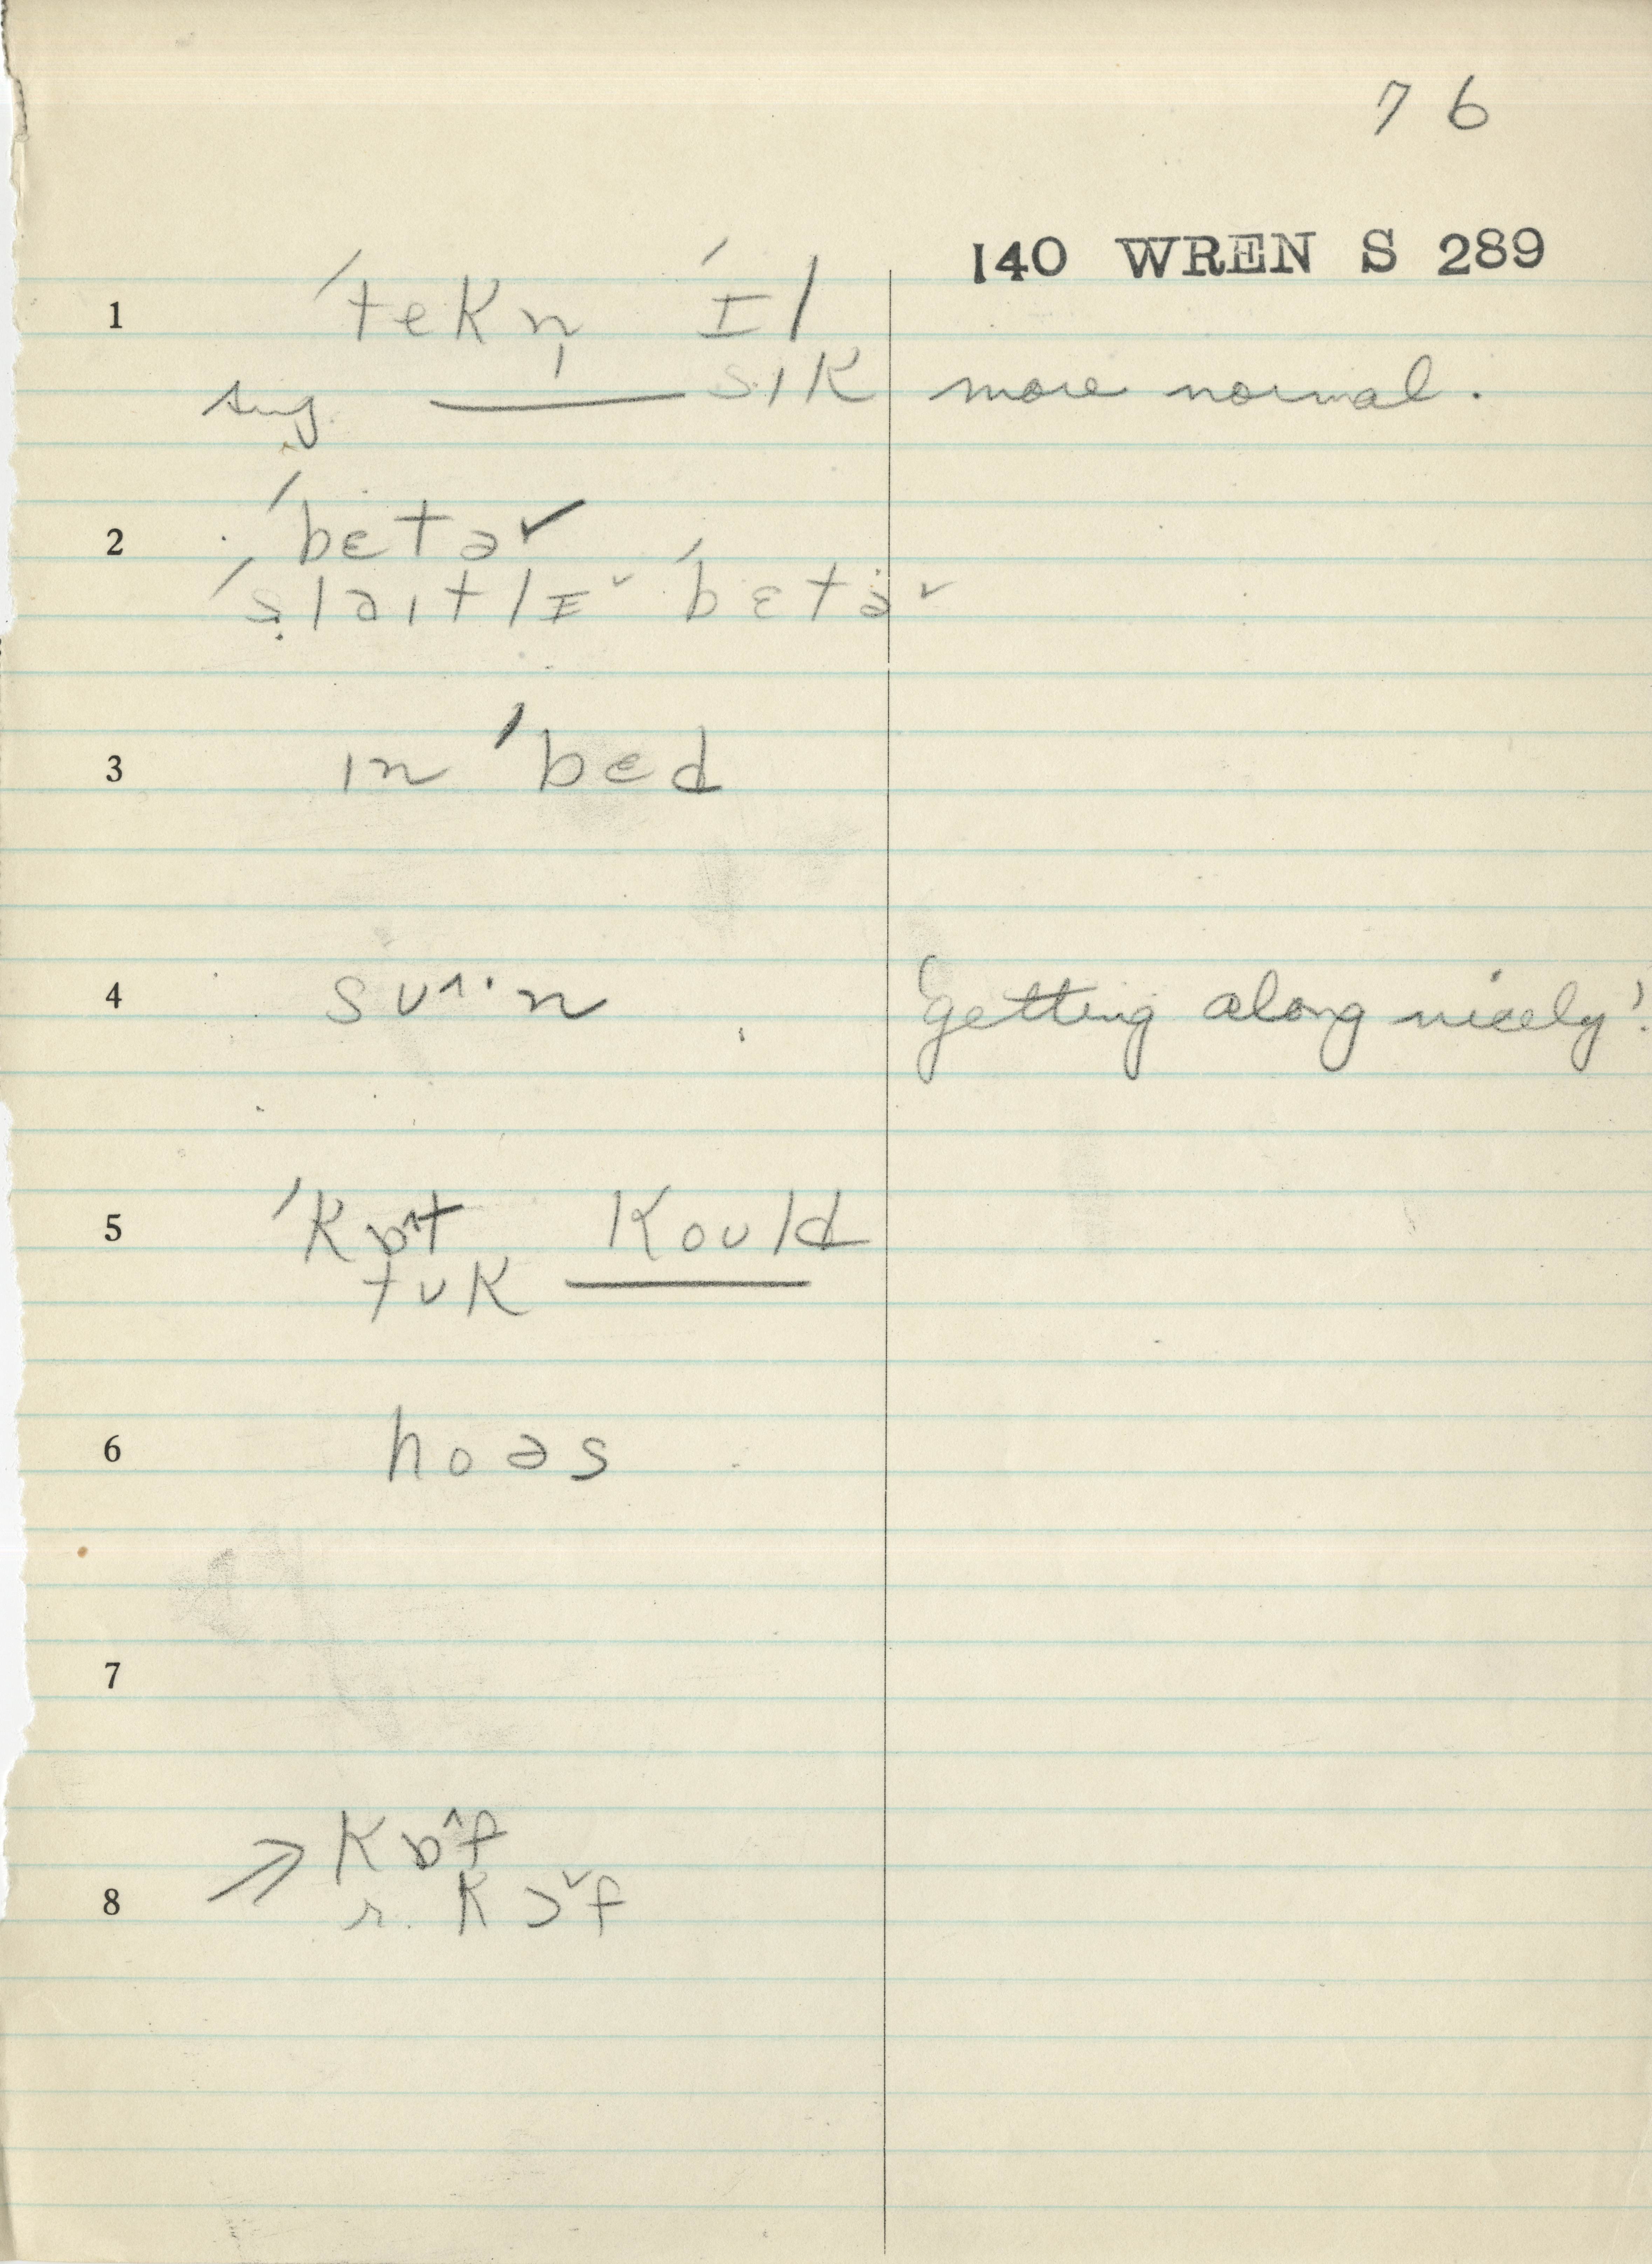 76
140 WREN S 289
1 ˈtekn̩ ˈɪl
sug. ___ sɪk more normal.
2 ˈbɛtə˅
ˈslaɪtlɪ˅ ˈbɛtə˅
3 ɪn ˈbɛd
4 sʊ^·n 'getting along nicely'.
5 ˈkɒ^t kould
tʊk ___
6 hoəs
7
⇒ kɒ^f
8 r. kɔ˅f